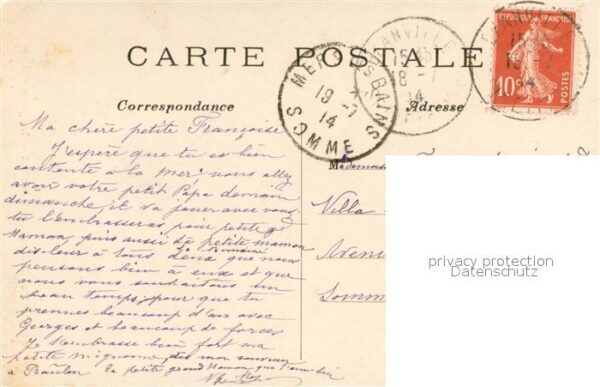 CARTE POSTALE
Correspondance
Adresse
RÉPUBLIQUE FRANÇAISE
10c
POSTES
MERS LES BAINS
19 -7
14
SOMME
18 -7
14
Ma chère petite Françoise
J'espère que tu es bien
contente à la mer nous
avoir votre petit Papa demain
dimanche et va jouer avec vous
tu l'embrasseras pour petite
Maman puis aussi ta petite maman
dis-leur à tous deux que nous
pensons bien à eux et que
nous vous souhaitons un
beau temps, pour que tu
prennes beaucoup d'air avec
Georges et beaucoup de forces
Je t'embrasse bien fort ma
petite mignonne
à
la petite grand Maman qui t'aime bien
M
Villa
Avenue
Somme
privacy protection
Datenschutz